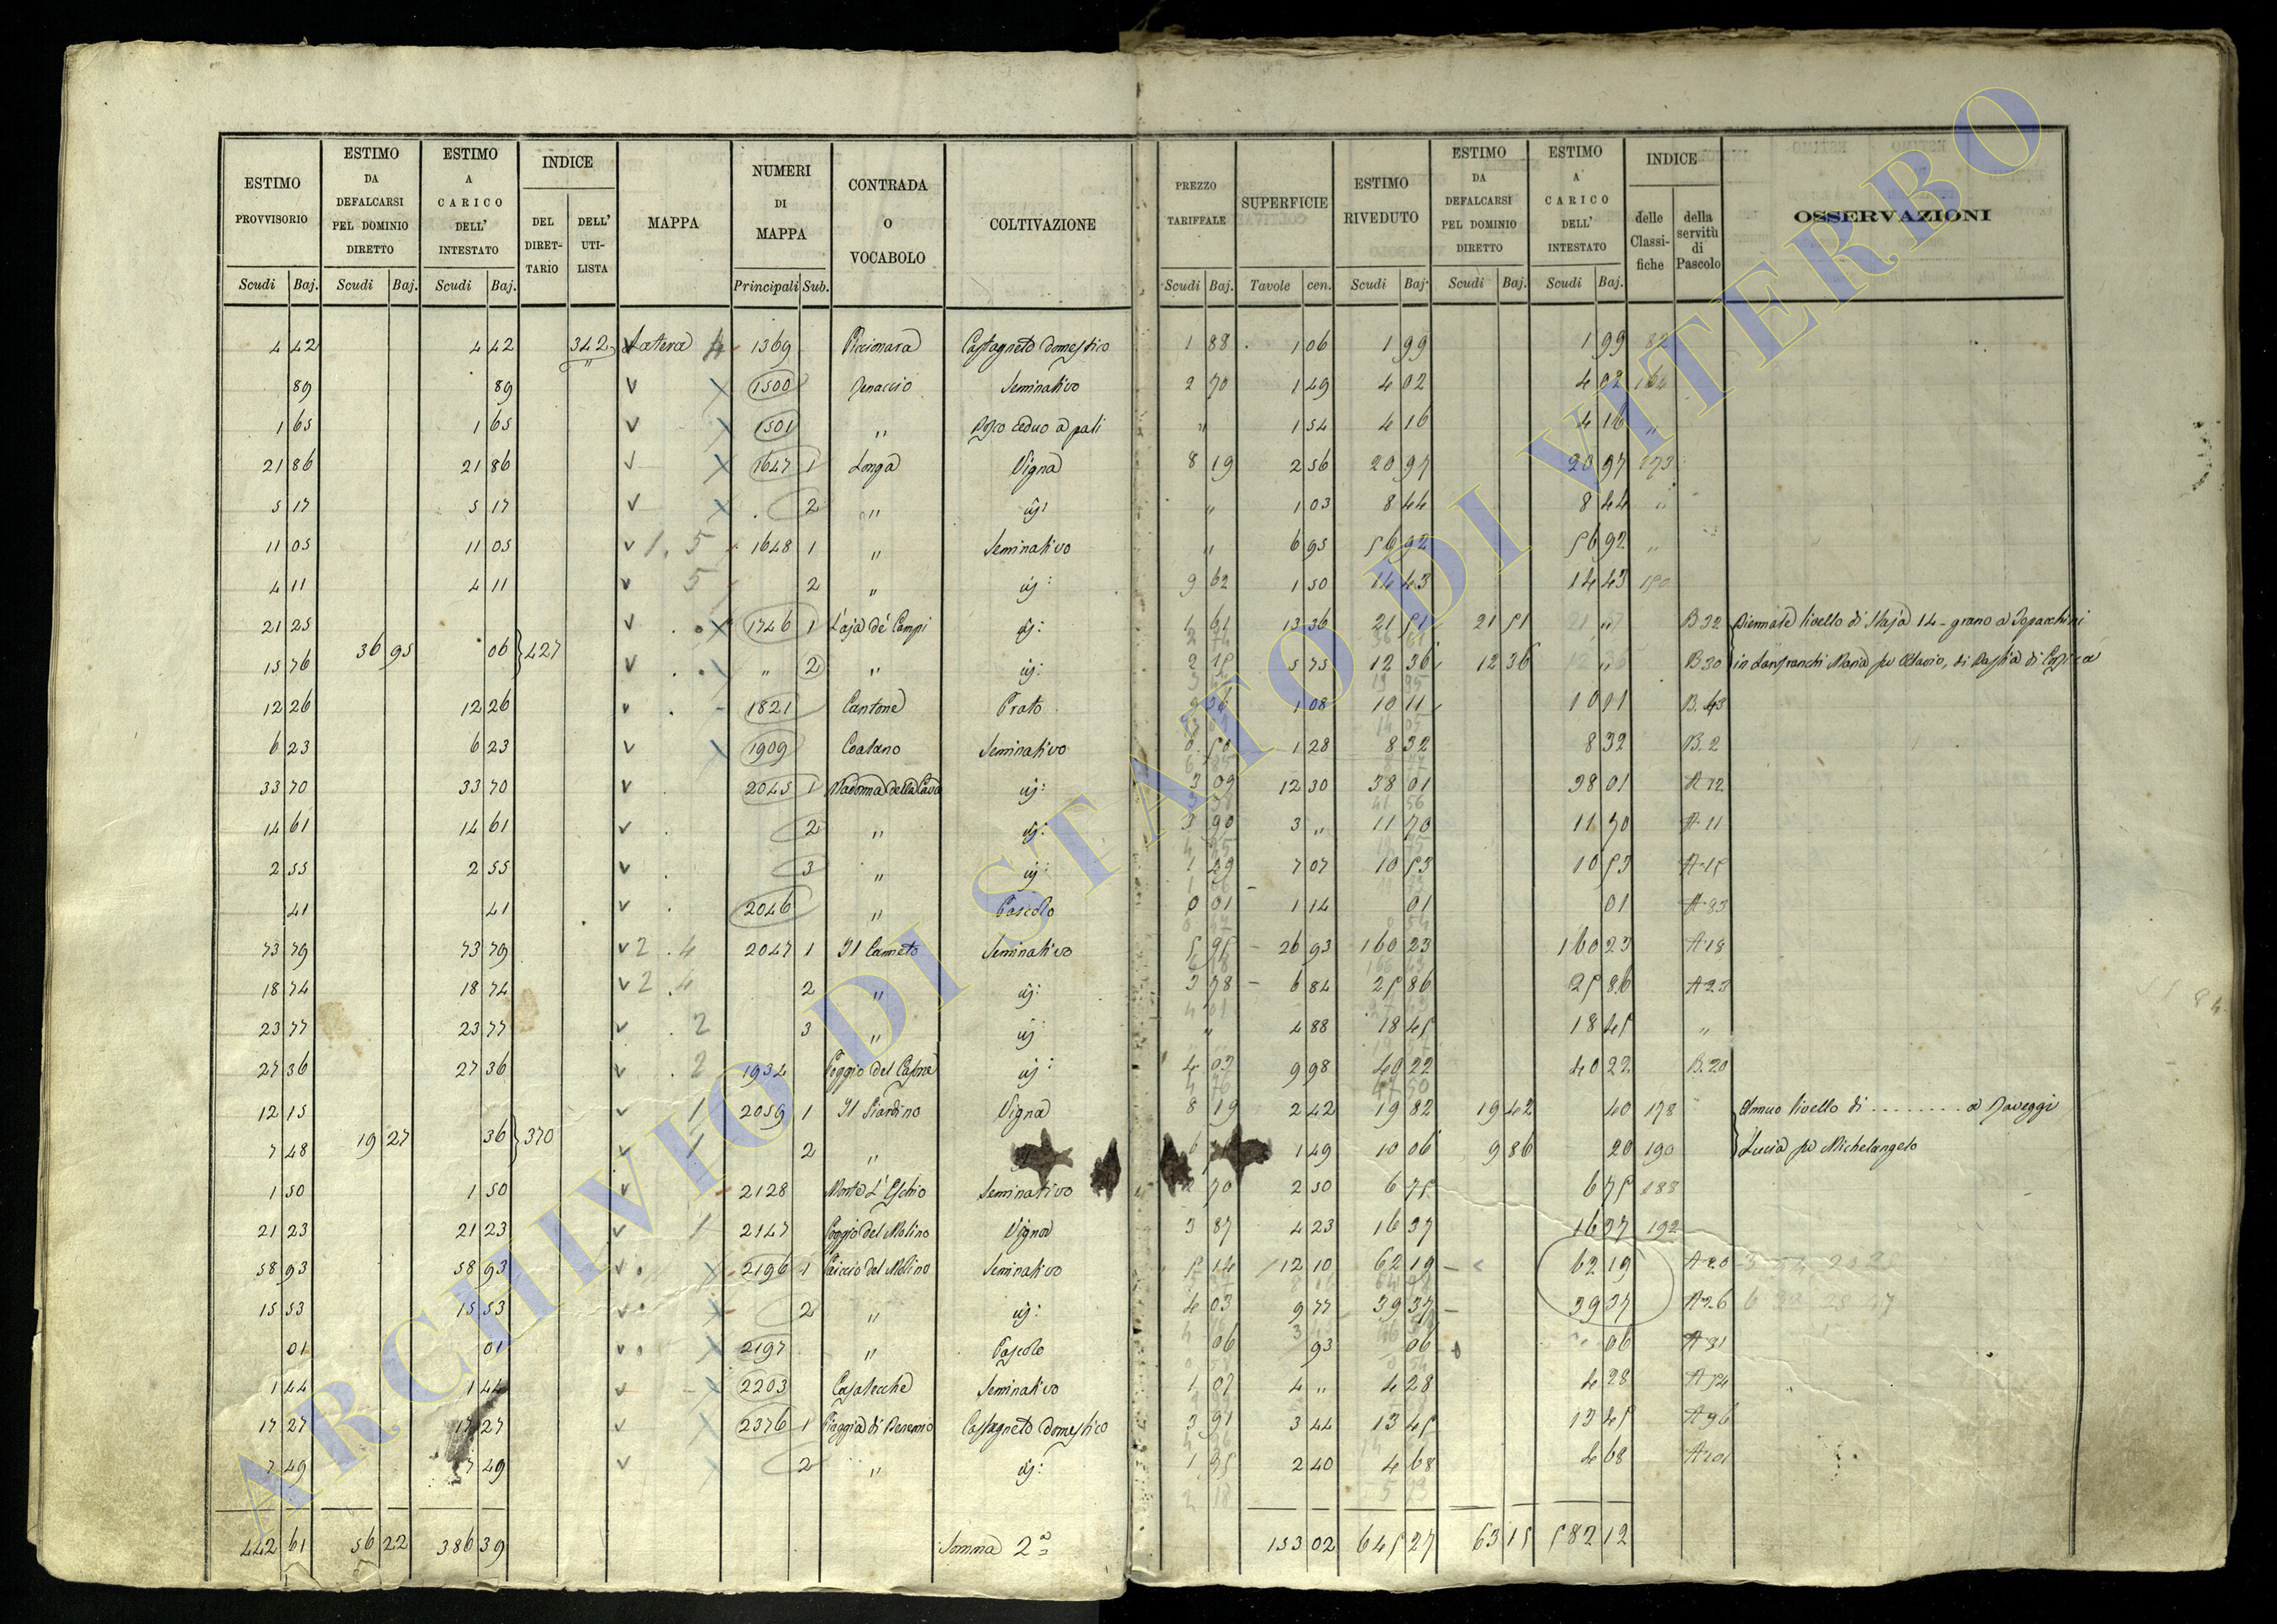 ESTIMO PROVVISORIO | ESTIMO DA DEFALCARSI PEL DOMINIO DIRETTO | ESTIMO A CARICO DELL' INTESTATO | INDICE DEL DIRETTARIO | DELL' UTILISTA | MAPPA | NUMERI DI MAPPA | CONTRADA O VOCABOLO | COLTIVAZIONE | PREZZO TARIFFALE | SUPERFICIE | ESTIMO RIVEDUTO | ESTIMO DA DEFALCARSI PEL DOMINIO DIRETTO | ESTIMO A CARICO DELL' INTESTATO | INDICE delle Classifiche | della servitù di Pascolo | OSSERVAZIONI
Scudi Baj. | Scudi Baj. | Scudi Baj. | Principali Sub. | Scudi Baj. | Tavole cen. | Scudi Baj. | Scudi Baj. | Scudi Baj.
4 42 | 4 42 | 342 | Latera 4 | 1369 | Piccionara | Castagneto domestico | 1 88 | 1 06 | 1 99 | 1 99 | 82
89 | 89 | 1500 | Seminativo | 2 70 | 1 49 | 4 02 | 4 02 | 164
1 65 | 1 65 | 1501 | " | Bosco ceduo a pali | " | 1 54 | 4 16 | 4 16 | "
21 86 | 21 86 | 1647 1 | Longa | Vigna | 8 19 | 2 56 | 20 97 | 20 97 | 173
5 17 | 5 17 | 2 | " | " | 1 03 | 8 44 | 8 44 | "
11 05 | 11 05 | 1. 5 | 1648 1 | " | Seminativo | " | 6 95 | 56 92 | 56 92 | "
4 11 | 4 11 | 5 | 2 | " | 9 62 | 1 50 | 14 43 | 14 43 | 190
21 25 | 1746 1 | L'aja de' Campi | 1 61 | 13 36 | 21 51 | 21 51 | " | B 32 | Biennale livello di Staja 14 - grano a
36 95 | 06 | 427
15 76 | " 2 | " | 2 15 | 5 75 | 12 36 | 12 36 | " | B 30 | in Lanfranchi Maria fu Ottavio, di Bastia di Corsica
12 26 | 12 26 | 1821 | Cantone | Prato | 9 36 | 1 08 | 10 11 | 10 11 | B. 43
6 23 | 6 23 | 1909 | Seminativo | 6 50 | 1 28 | 8 32 | 8 32 | B. 2
33 70 | 33 70 | 2045 1 | Madonna della Cava | 3 09 | 12 30 | 38 01 | 38 01 | A 12
14 61 | 14 61 | 2 | " | 3 90 | 3 " | 11 70 | 11 70 | A 11
2 55 | 2 55 | 3 | " | 1 49 | 7 07 | 10 53 | 10 53 | A 15
41 | 41 | 2046 | " | Pascolo | 0 01 | 1 14 | 01 | 01 | A 83
73 79 | 73 79 | 2 . 4 | 2047 1 | Il Canneto | Seminativo | 5 95 | 26 93 | 160 23 | 160 23 | A 18
18 74 | 18 74 | 2 . 4 | 2 | " | 3 78 | 6 84 | 25 86 | 25 86 | A 23
23 77 | 23 77 | 2 | 3 | " | " | 4 88 | 18 45 | 18 45 | "
27 36 | 27 36 | 2 | 1934 | Poggio del | 4 03 | 9 98 | 40 22 | 40 22 | B. 20
12 15 | 1 | 2059 1 | Il Giardino | Vigna | 8 19 | 2 42 | 19 82 | 19 42 | 40 | 178 | Annuo livello di ........ a
19 27 | 36 | 370
7 48 | 1 | 2 | " | 1 49 | 10 06 | 9 86 | 20 | 190 | Lucia fu Michelangelo
1 50 | 1 50 | 2128 | Monte | Seminativo | 2 70 | 2 50 | 6 75 | 6 75 | 188
21 23 | 21 23 | 1 | 2147 | Poggio del Molino | Vigna | 3 87 | 4 23 | 16 37 | 16 37 | 192
58 93 | 58 93 | 2196 1 | del Molino | Seminativo | 5 14 | 12 10 | 62 19 | 62 19 | A 20
15 53 | 15 53 | 2 | " | 4 03 | 9 77 | 39 37 | 39 37 | A 26
01 | 01 | 2197 | " | Pascolo | 06 | 93 | 06 | 06 | A 81
1 44 | 1 44 | 2203 | Casalecche | Seminativo | 1 07 | 4 " | 4 28 | 4 28 | A 54
17 27 | 17 27 | 2376 1 | Piaggia di | Castagneto domestico | 3 91 | 3 44 | 13 45 | 13 45 | A 96
7 49 | 7 49 | 2 | " | 1 95 | 2 40 | 4 68 | 4 68 | A 101
442 61 | 56 22 | 386 39 | Somma 2a | 153 02 | 645 27 | 63 15 | 582 12
ARCHIVIO DI STATO DI VITERBO